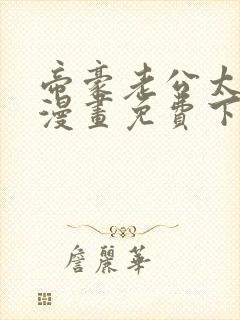 帝豪老公太
漫畫免費下
詹麗華